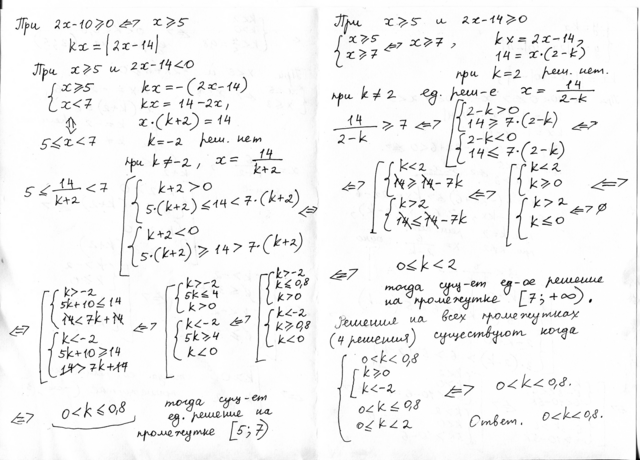 При 2x-10⩾0 ⇔ x⩾5
kx = |2x-14|
При x⩾5 и 2x-14<0
{ x⩾5 kx = -(2x-14)
{ x<7 kx = 14-2x,
⇕ x·(k+2) = 14
5⩽x<7 k=-2 реш. нет
при k≠-2, x = 14/(k+2)
5 ⩽ 14/(k+2) < 7
[ { k+2>0
{ 5·(k+2) ⩽ 14 < 7·(k+2)
{ k+2<0
{ 5·(k+2) ⩾ 14 > 7·(k+2) ⇔
⇔ [ { k>-2
{ 5k+10⩽14
{ 14<7k+14
{ k<-2
{ 5k+10⩾14
{ 14>7k+14
⇔ [ { k>-2
{ 5k⩽4
{ k>0
{ k<-2
{ 5k⩾4
{ k<0
⇔ [ { k>-2
{ k⩽0,8
{ k>0
{ k<-2
{ k⩾0,8
{ k<0
⇔ 0<k⩽0,8 тогда сущ-ет
ед. решение на
промежутке [5; 7)
При x⩾5 и 2x-14⩾0
{ x⩾5
{ x⩾7 ⇔ x⩾7, kx = 2x-14,
14 = x·(2-k)
при k=2 реш. нет.
при k≠2 ед. реш-е x = 14/(2-k)
14/(2-k) ⩾ 7 ⇔ [ { 2-k>0
{ 14⩾7·(2-k)
{ 2-k<0
{ 14⩽7·(2-k) ⇔
⇔ [ { k<2
{ 14⩾14-7k
{ k>2
{ 14⩽14-7k
⇔ [ { k<2
{ k⩾0
{ k>2
{ k⩽0 ⇔ ∅ ⇔
⇔ 0⩽k<2
тогда сущ-ет ед-ое решение
на промежутке [7; +∞).
Решения на всех промежутках
(4 решения) существуют когда
{ 0<k<0,8
[ k⩾0
[ k<-2
0<k⩽0,8
0⩽k<2
⇔ 0<k<0,8.
Ответ. 0<k<0,8.